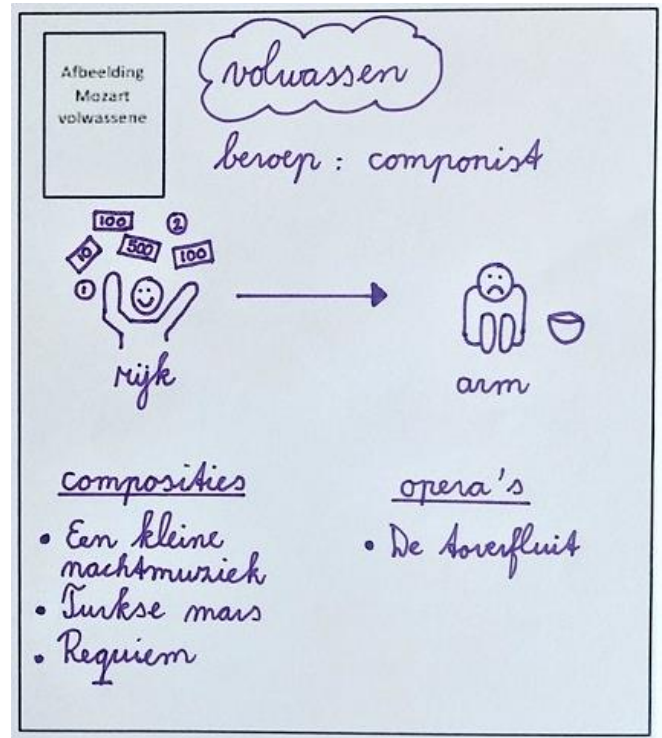 Afbeelding
Mozart
volwassene
volwassen
beroep : componist
100
2
10
500
100
1
rijk
arm
composities
• Een kleine
nachtmuziek
• Turkse mars
• Requiem
opera's
• De toverfluit